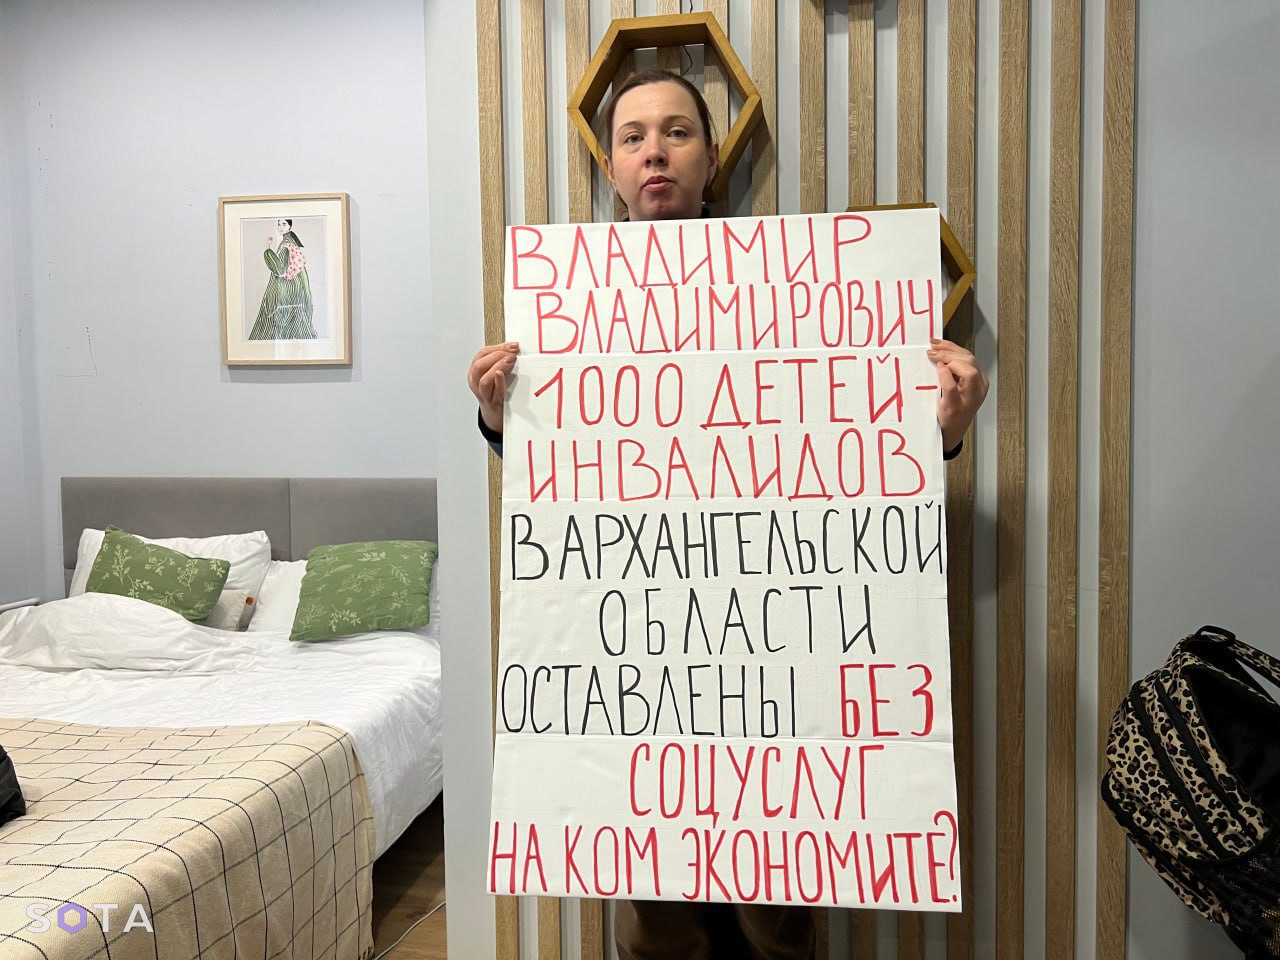 ВЛАДИМИР
ВЛАДИМИРОВИЧ
1000 ДЕТЕЙ-
ИНВАЛИДОВ
В АРХАНГЕЛЬСКОЙ
ОБЛАСТИ
ОСТАВЛЕНЫ БЕЗ
СОЦУСЛУГ
НА КОМ ЭКОНОМИТЕ?
SOTA